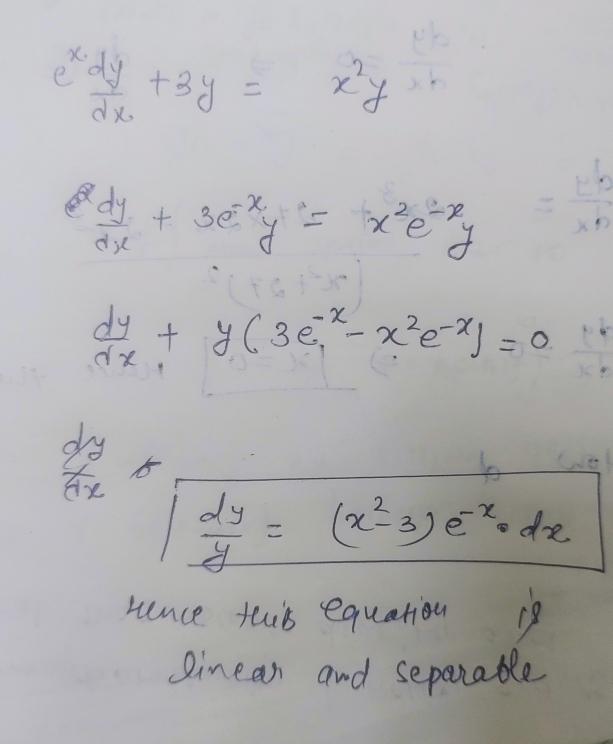 e^x dy/dx + 3y = x²y
dy/dx + 3e^-x y = x²e^-x y
dy/dx + y(3e^-x - x²e^-x) = 0
dy/dx
dy/y = (x²-3)e^-x . dx
Hence this equation is
linear and separable